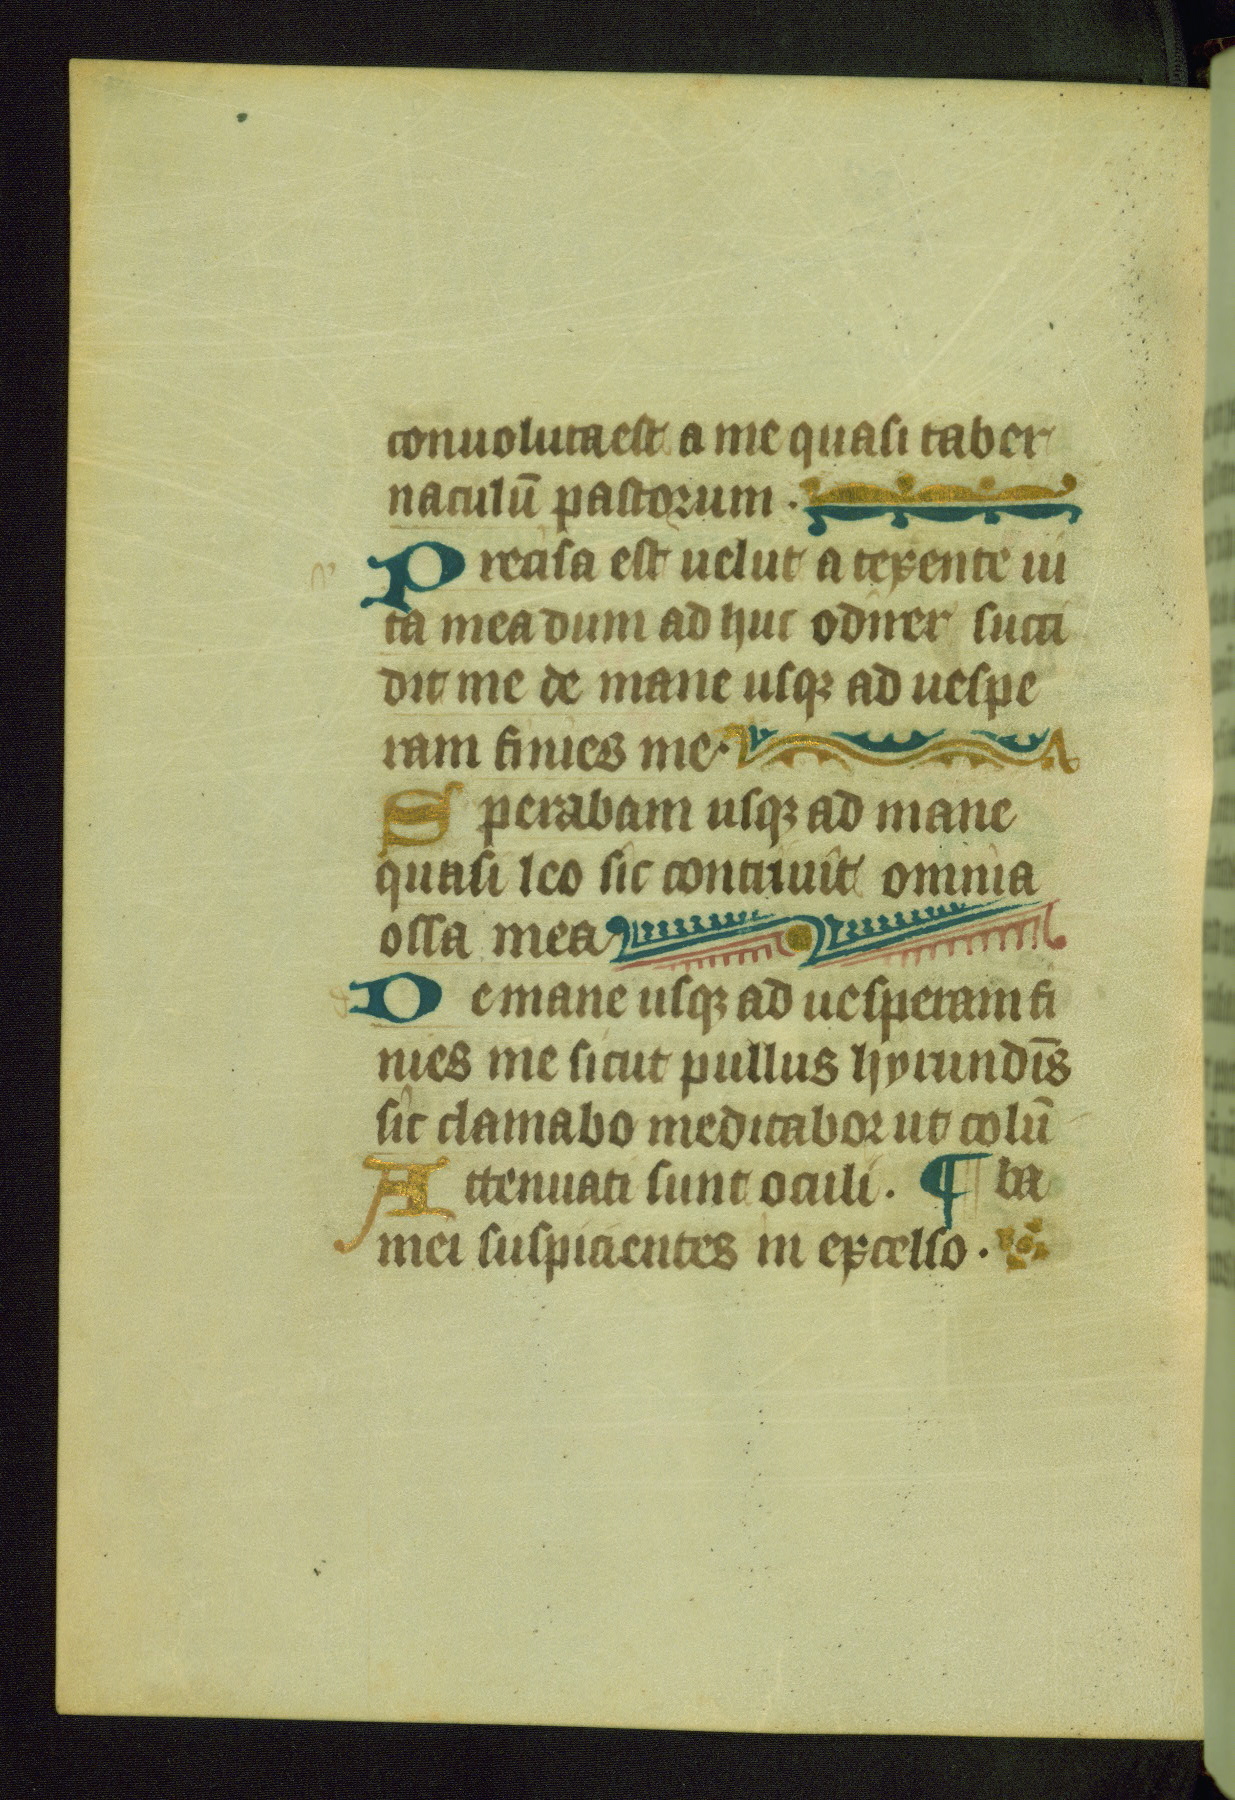 conuoluta est a me quasi taber
naculū pastorum .
Precisa est uelut a texente ui
ta mea dum ad huc odirer succi
dit me de mane usqꝫ ad uespe
ram finies me .
Sperabam usqꝫ ad mane
quasi leo sic contriuit omnia
ossa mea
De mane usqꝫ ad uesperam fi
nies me sicut pullus hyrundīs
sic clamabo meditabor ut colū
Attenuati sunt oculi . ¶ ba
mei suspicientes in excelso .